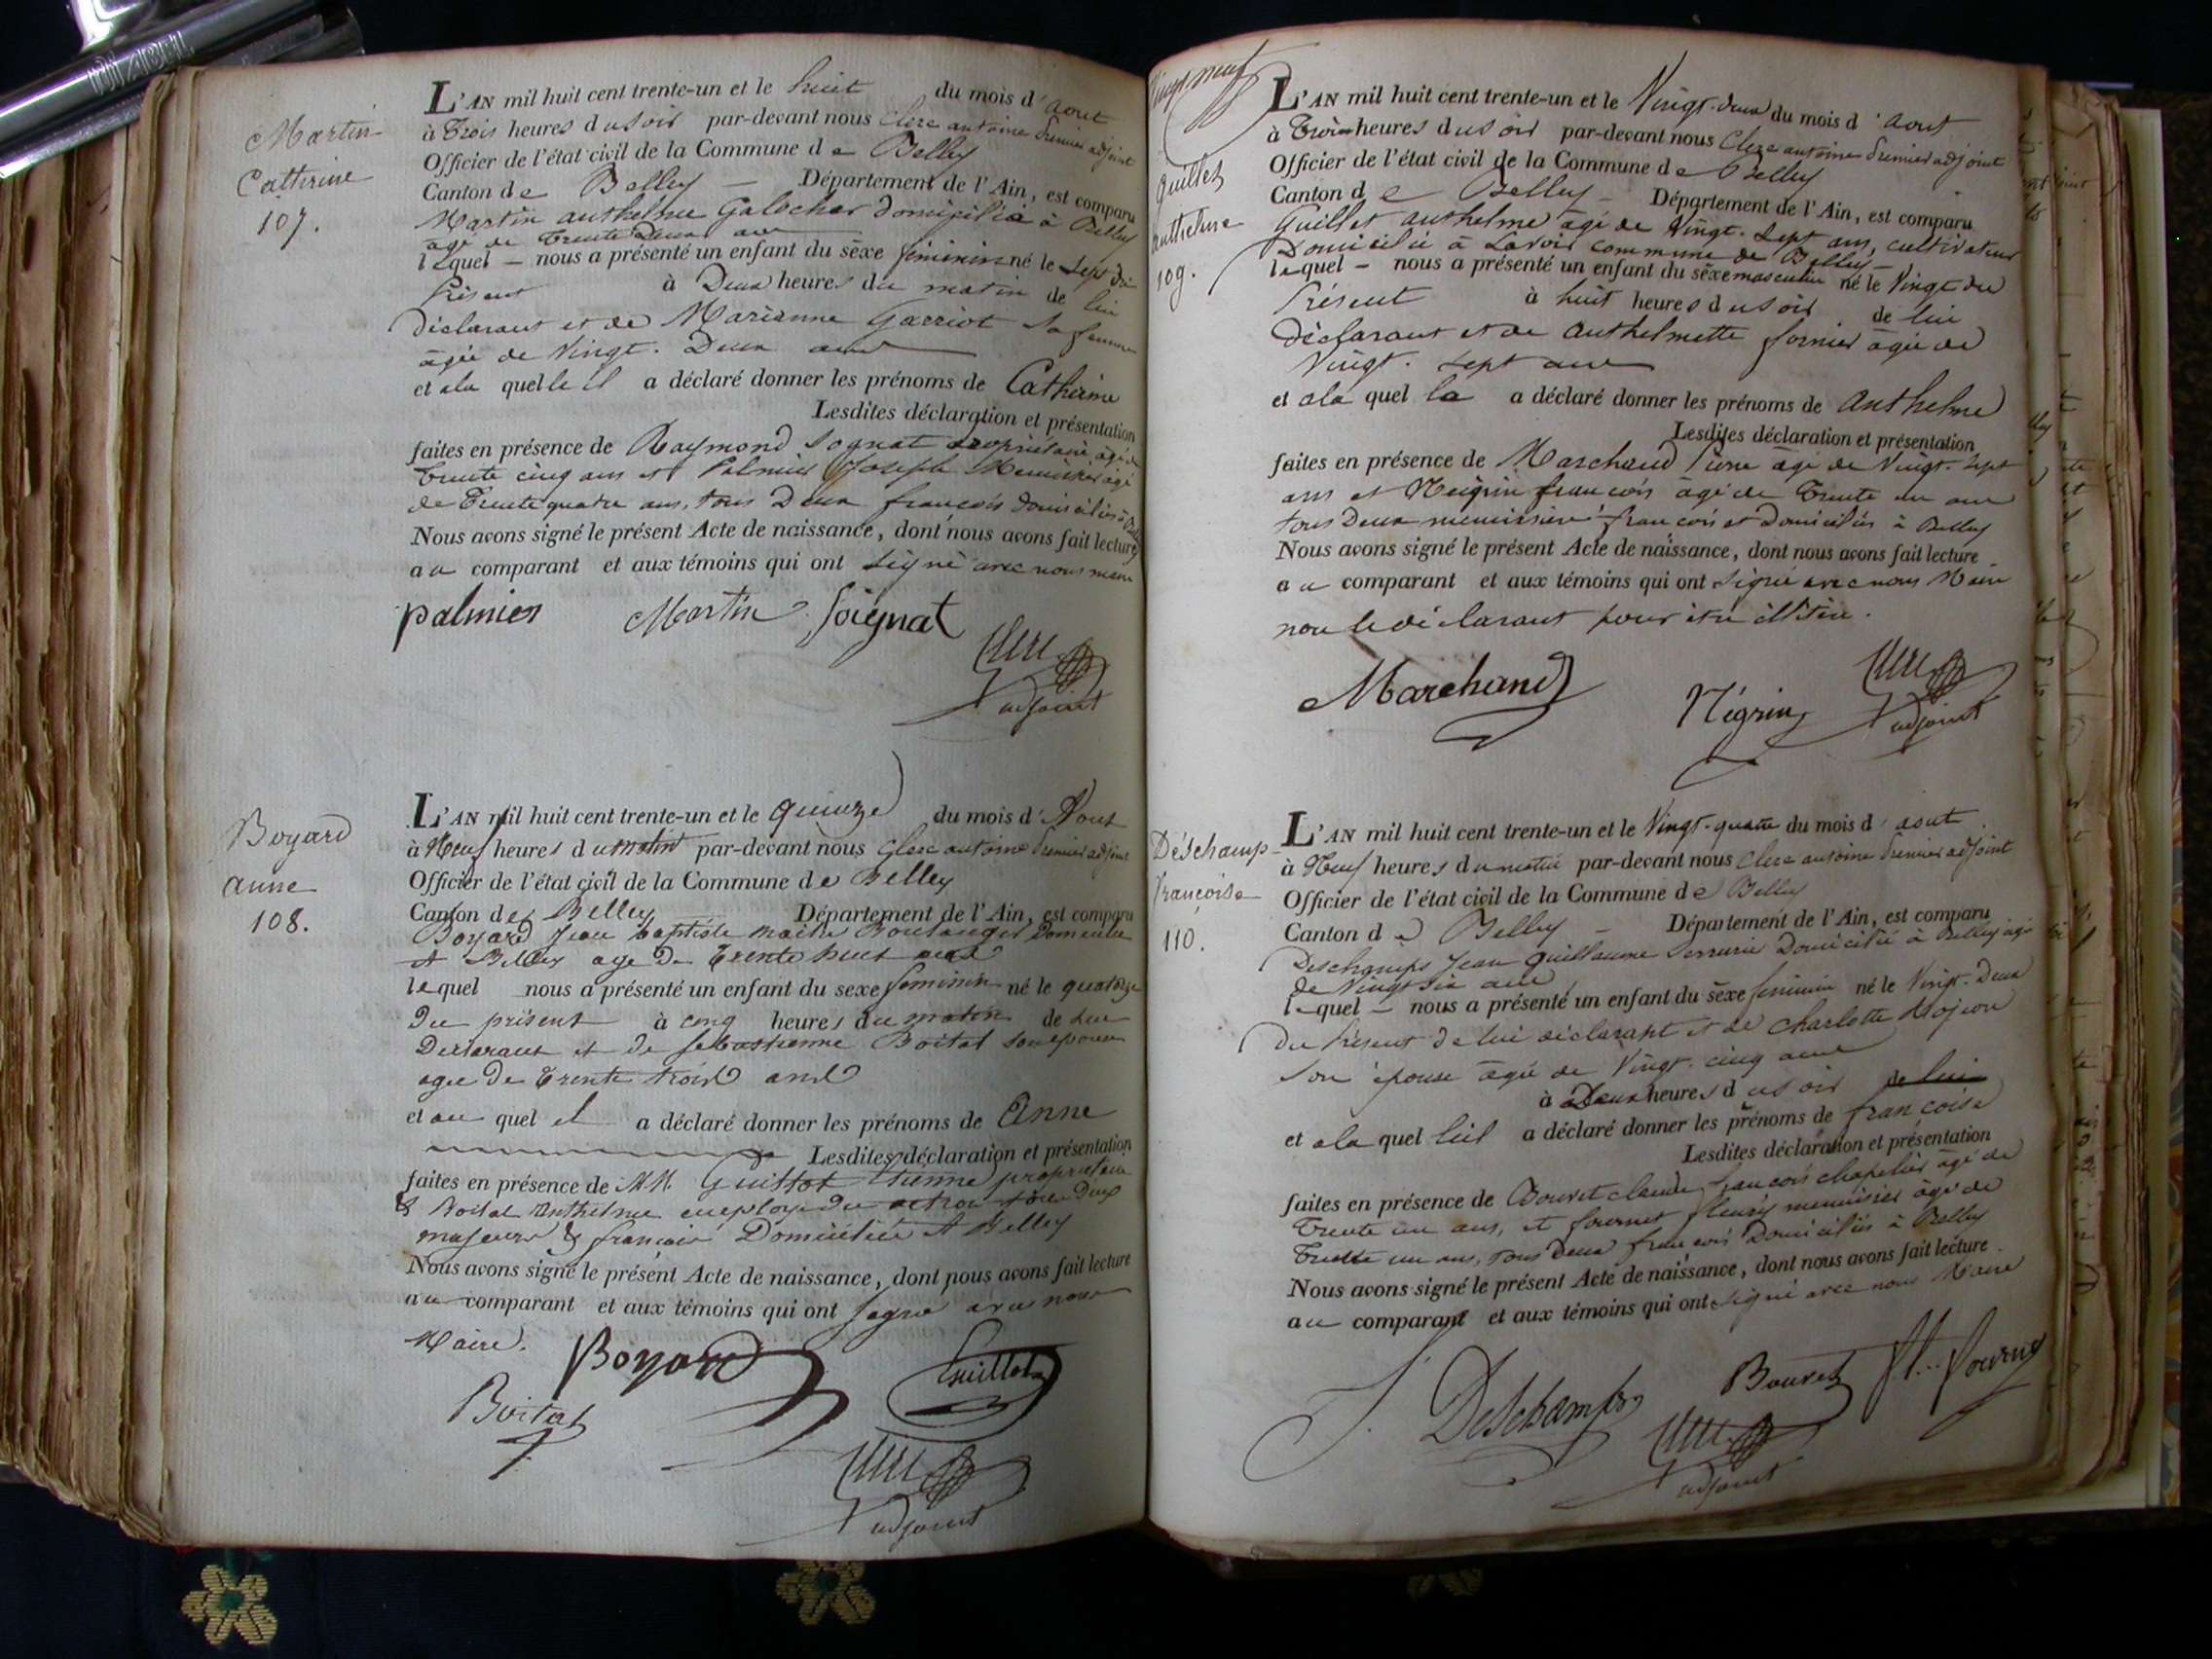 Martin
Catherine
107.
L'AN mil huit cent trente-un et le huit du mois d'aout
à Trois heures du soir par-devant nous Clerc antoine premier adjoint
Officier de l'état civil de la Commune de Belley
Canton de Belley — Département de l'Ain, est comparu
Martin anthelme Galocher domicilié à Belley
âgé de Trente Deux ans
lequel — nous a présenté un enfant du sexe féminin né le sept du
présent à Deux heures du matin de lui
déclarant et de Marianne Garriot sa femme
âgée de Vingt. Deux ans
et ala quelle il a déclaré donner les prénoms de Catherine
Lesdites déclaration et présentation
faites en présence de Raymond Sognat propriétaire âgé de
Trente cinq ans et Palmier Joseph Menuisier âgé
de Trente quatre ans, tous Deux francois domiciliés à Belley
Nous avons signé le présent Acte de naissance, dont nous avons fait lecture
au comparant et aux témoins qui ont signé avec nous maire
palmier Martin Soignat
Clerc
adjoint
Boyard
anne
108.
L'AN mil huit cent trente-un et le quinze du mois d'Aout
à Neuf heures du matin par-devant nous Clerc antoine premier adjoint
Officier de l'état civil de la Commune de Belley
Canton de Belley Département de l'Ain, est comparu
Boyard Jean baptiste maitre Boulanger Domicilié
A Belley age De Trente huit ans
lequel nous a présenté un enfant du sexe feminin né le quatorze
Du présent à cinq heures du matin de lui
Declarant et de Sebastienne Boitat son epouse
agee De Trente trois ans
et au quel il a déclaré donner les prénoms de Anne
Lesdites déclaration et présentation
faites en présence de M.M. Guillot Etienne proprietaire
& Boitat Anthelme employé du octroi tous deux
majeurs & francais Domiciliés A Belley
Nous avons signé le présent Acte de naissance, dont nous avons fait lecture
au comparant et aux témoins qui ont signé avec nous
Maire.
Boyard
Guillot
Boitat
Clerc
adjoint
Vingt neuf
Guillet
anthelme
109.
L'AN mil huit cent trente-un et le Vingt-deux du mois d'aout
à Trois heures du soir par-devant nous Clerc antoine premier adjoint
Officier de l'état civil de la Commune de Belley
Canton de Belley — Département de l'Ain, est comparu
Guillet anthelme âgé de Vingt. sept ans, cultivateur
Domicilié à Lavoir commune de Belley
lequel — nous a présenté un enfant du sexe masculin né le Vingt du
présent à huit heures du soir de lui
déclarant et de anthelmette fornier âgée de
Vingt. sept ans
et ala quel la a déclaré donner les prénoms de anthelme
Lesdites déclaration et présentation
faites en présence de Marchand Pierre âgé de Vingt. Sept
ans et Neigrin francois âgé de Trente un ans
tous Deux menuisiers francois et domiciliés à Belley
Nous avons signé le présent Acte de naissance, dont nous avons fait lecture
au comparant et aux témoins qui ont signé avec nous Maire
non le déclarant pour être illitéré.
Marchand
Négrin
Clerc
adjoint
Déschamp
françoise
110.
L'AN mil huit cent trente-un et le Vingt-quatre du mois d'aout
à Neuf heures du matin par-devant nous Clerc antoine premier adjoint
Officier de l'état civil de la Commune de Belley
Canton de Belley — Département de l'Ain, est comparu
Deschamps Jean Guillaume serrurier Domicilié à Belley âgé
de Vingt six ans
lequel — nous a présenté un enfant du sexe féminin né le Vingt. Deux
Du présent de lui déclarant et de Charlotte Mojeon
son épouse âgée de Vingt. cinq ans
à Deux heures du soir de lui
et ala quel il a déclaré donner les prénoms de françoise
Lesdites déclaration et présentation
faites en présence de Bouvet claude francois chapelier âgé de
Trente un ans, et fournet fleury menuisier âgé de
Trente un ans, tous Deux francois Domiciliés à Belley
Nous avons signé le présent Acte de naissance, dont nous avons fait lecture
au comparant et aux témoins qui ont signé avec nous Maire
J. Deschamps
Bouvet
fl. fournet
Clerc
adjoint